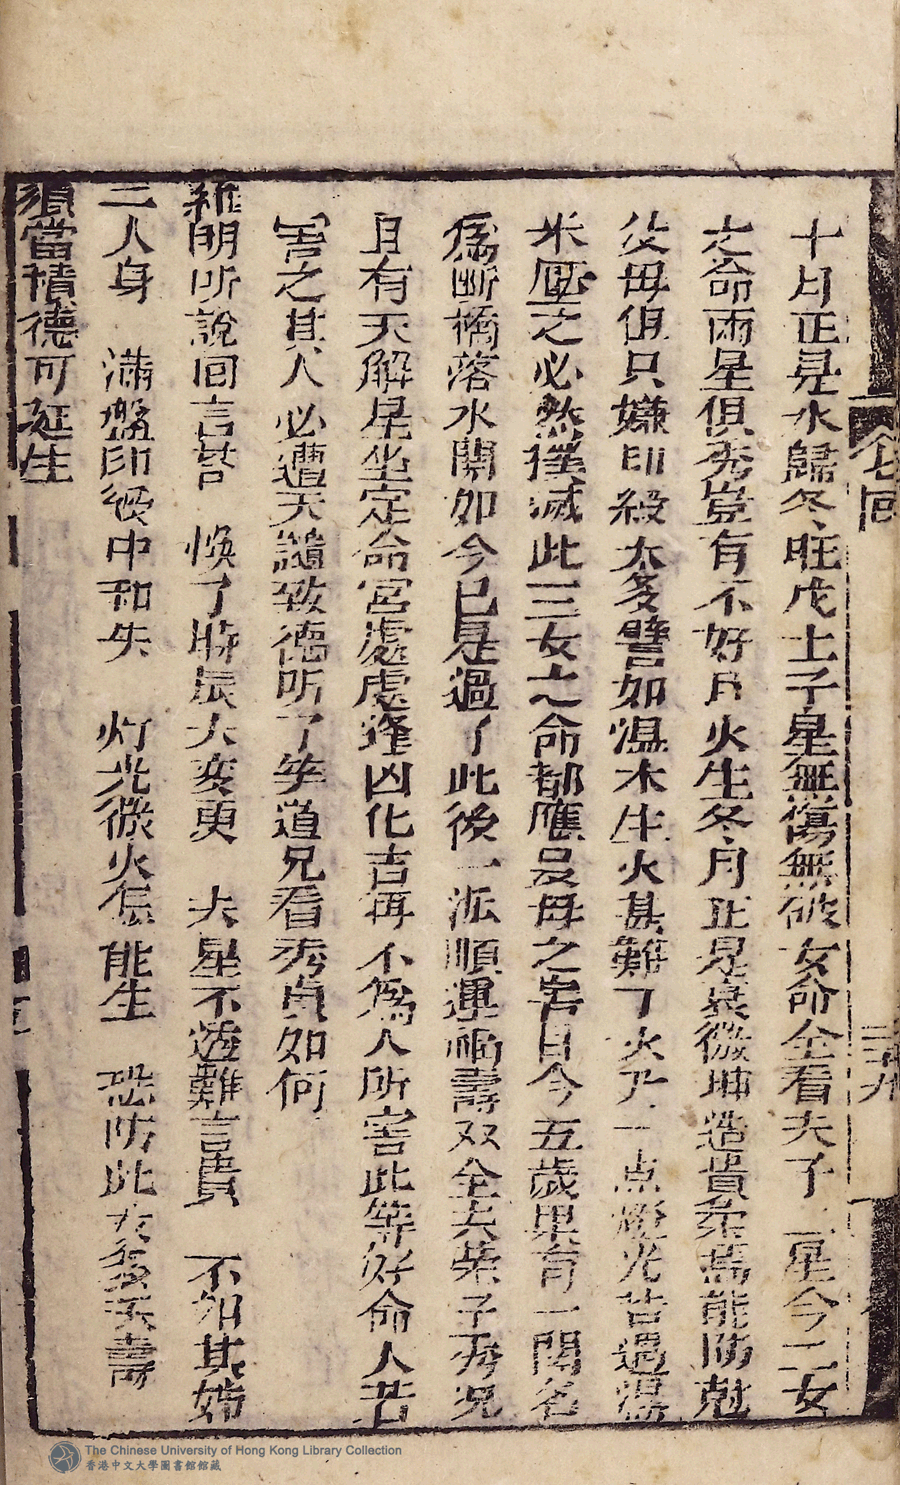 十月正是水歸冬旺戊土子星無傷無破女命全看夫子二星今二女
之命兩星俱秀豈有不好月火生冬月正是衰微坤造貴柔焉能防尅
父母但只嫌印綬太多譬如濕木生火甚難丁火乃一点燈光若遇濕
米壓之必然撲滅此三女之命都應是母之害目今五歲果有一関名
為断橋落水關如今已是過了此後一派順運福壽双全夫荣子秀况
且有天解星坐定命宮處處逢凶化吉再不為人所害此等好命人若
害之其人必遭天譴致德听了笑道兄看秀貞如何
維明听說回言答 換了時辰大变更 夫星不透難言貴 不如其姊
二人身 滿盤印綬中和失 灯光微火怎能生 恐防此女多夭壽
須當積德可延生
卷四
二十九
The Chinese University of Hong Kong Library Collection
香港中文大學圖書館館藏